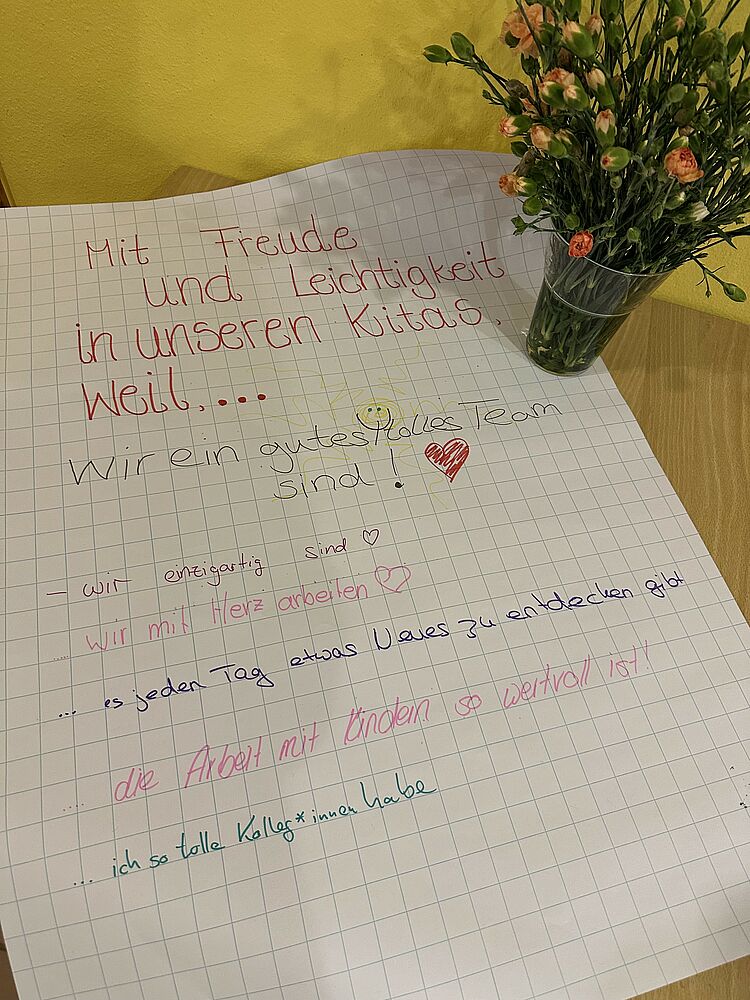 Mit Freude
und Leichtigkeit
in unseren Kitas,
weil....
Wir ein gutes/tolles Team
sind!
– wir einzigartig sind ♡
.... wir mit Herz arbeiten ♡
... es jeden Tag etwas Neues zu entdecken gibt
.... die Arbeit mit Kindern so wertvoll ist!
... ich so tolle Kolleg*innen habe